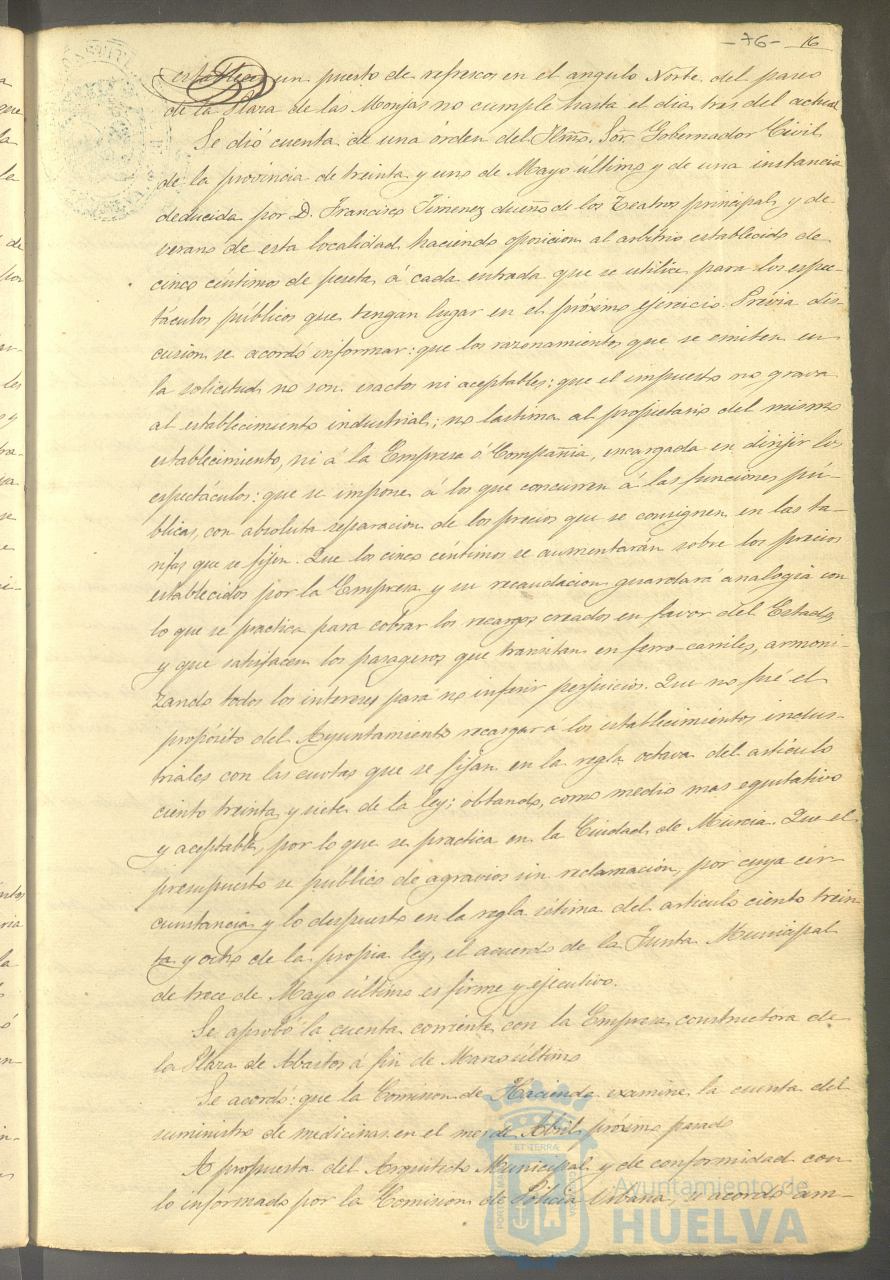 -76- 16
establecer un puesto de refrescos en el angulo Norte del paseo
de la Plaza de las Monjas no cumple hasta el dia tres del actual
Se dió cuenta de una órden del Ilmo. Sor. Gobernador Civil
de la provincia de treinta y uno de Mayo último y de una instancia
deducida por D. Francisco Jimenez dueño de los Teatros principal y de
verano de esta localidad haciendo oposicion al arbitrio establecido de
cinco céntimos de peseta á cada entrada que se utilice para los espec-
táculos públicos que tengan lugar en el próximo ejercicio. Prévia dis-
cusion se acordó informar: que los razonamientos que se emiten en
la solicitud no son esactos ni aceptables: que el impuesto no grava
al establecimiento industrial; no lastima al propietario del mismo
establecimiento, ni á la Empresa ó Compañia, encargada en dirijir los
espectáculos: que se impone á los que concurren á las funciones pú-
blicas, con absoluta separacion de los precios que se consignen en las ta-
rifas que se fijen. Que los cinco céntimos se aumentarán sobre los precios
establecidos por la Empresa y su recaudacion guardará analogia con
lo que se practica para cobrar los recargos creados en favor del Estado,
y que satisfacen los pasageros que transitan en ferro-carriles, armoni-
zando todos los intereses para no inferir perjuicios. Que no fué el
propósito del Ayuntamiento recargar á los establecimientos indus-
triales con las cuotas que se fijan en la regla octava del artículo
ciento treinta y siete de la ley; obtando, como medio mas equitativo
y aceptable, por lo que se practica en la Ciudad de Murcia. Que el
presupuesto se publicó de agravios sin reclamación, por cuya cir-
cunstancia y lo despuesto en la regla sétima del articulo ciento trein-
ta y ocho de la propia ley, el acuerdo de la Junta Municipal
de trece de Mayo último es firme y ejecutivo.
Se aprobó la cuenta corriente con la Empresa constructora de
la Plaza de Abastos á fin de Marzo último
Se acordó: que la Comision de Hacienda examine la cuenta del
suministro de medicinas en el mes de Abril próximo pasado
A propuesta del Arquitecto Municipal y de conformidad con
lo informado por la Comision de Policía Urbana, se acordó am-
Ayuntamiento de
HUELVA